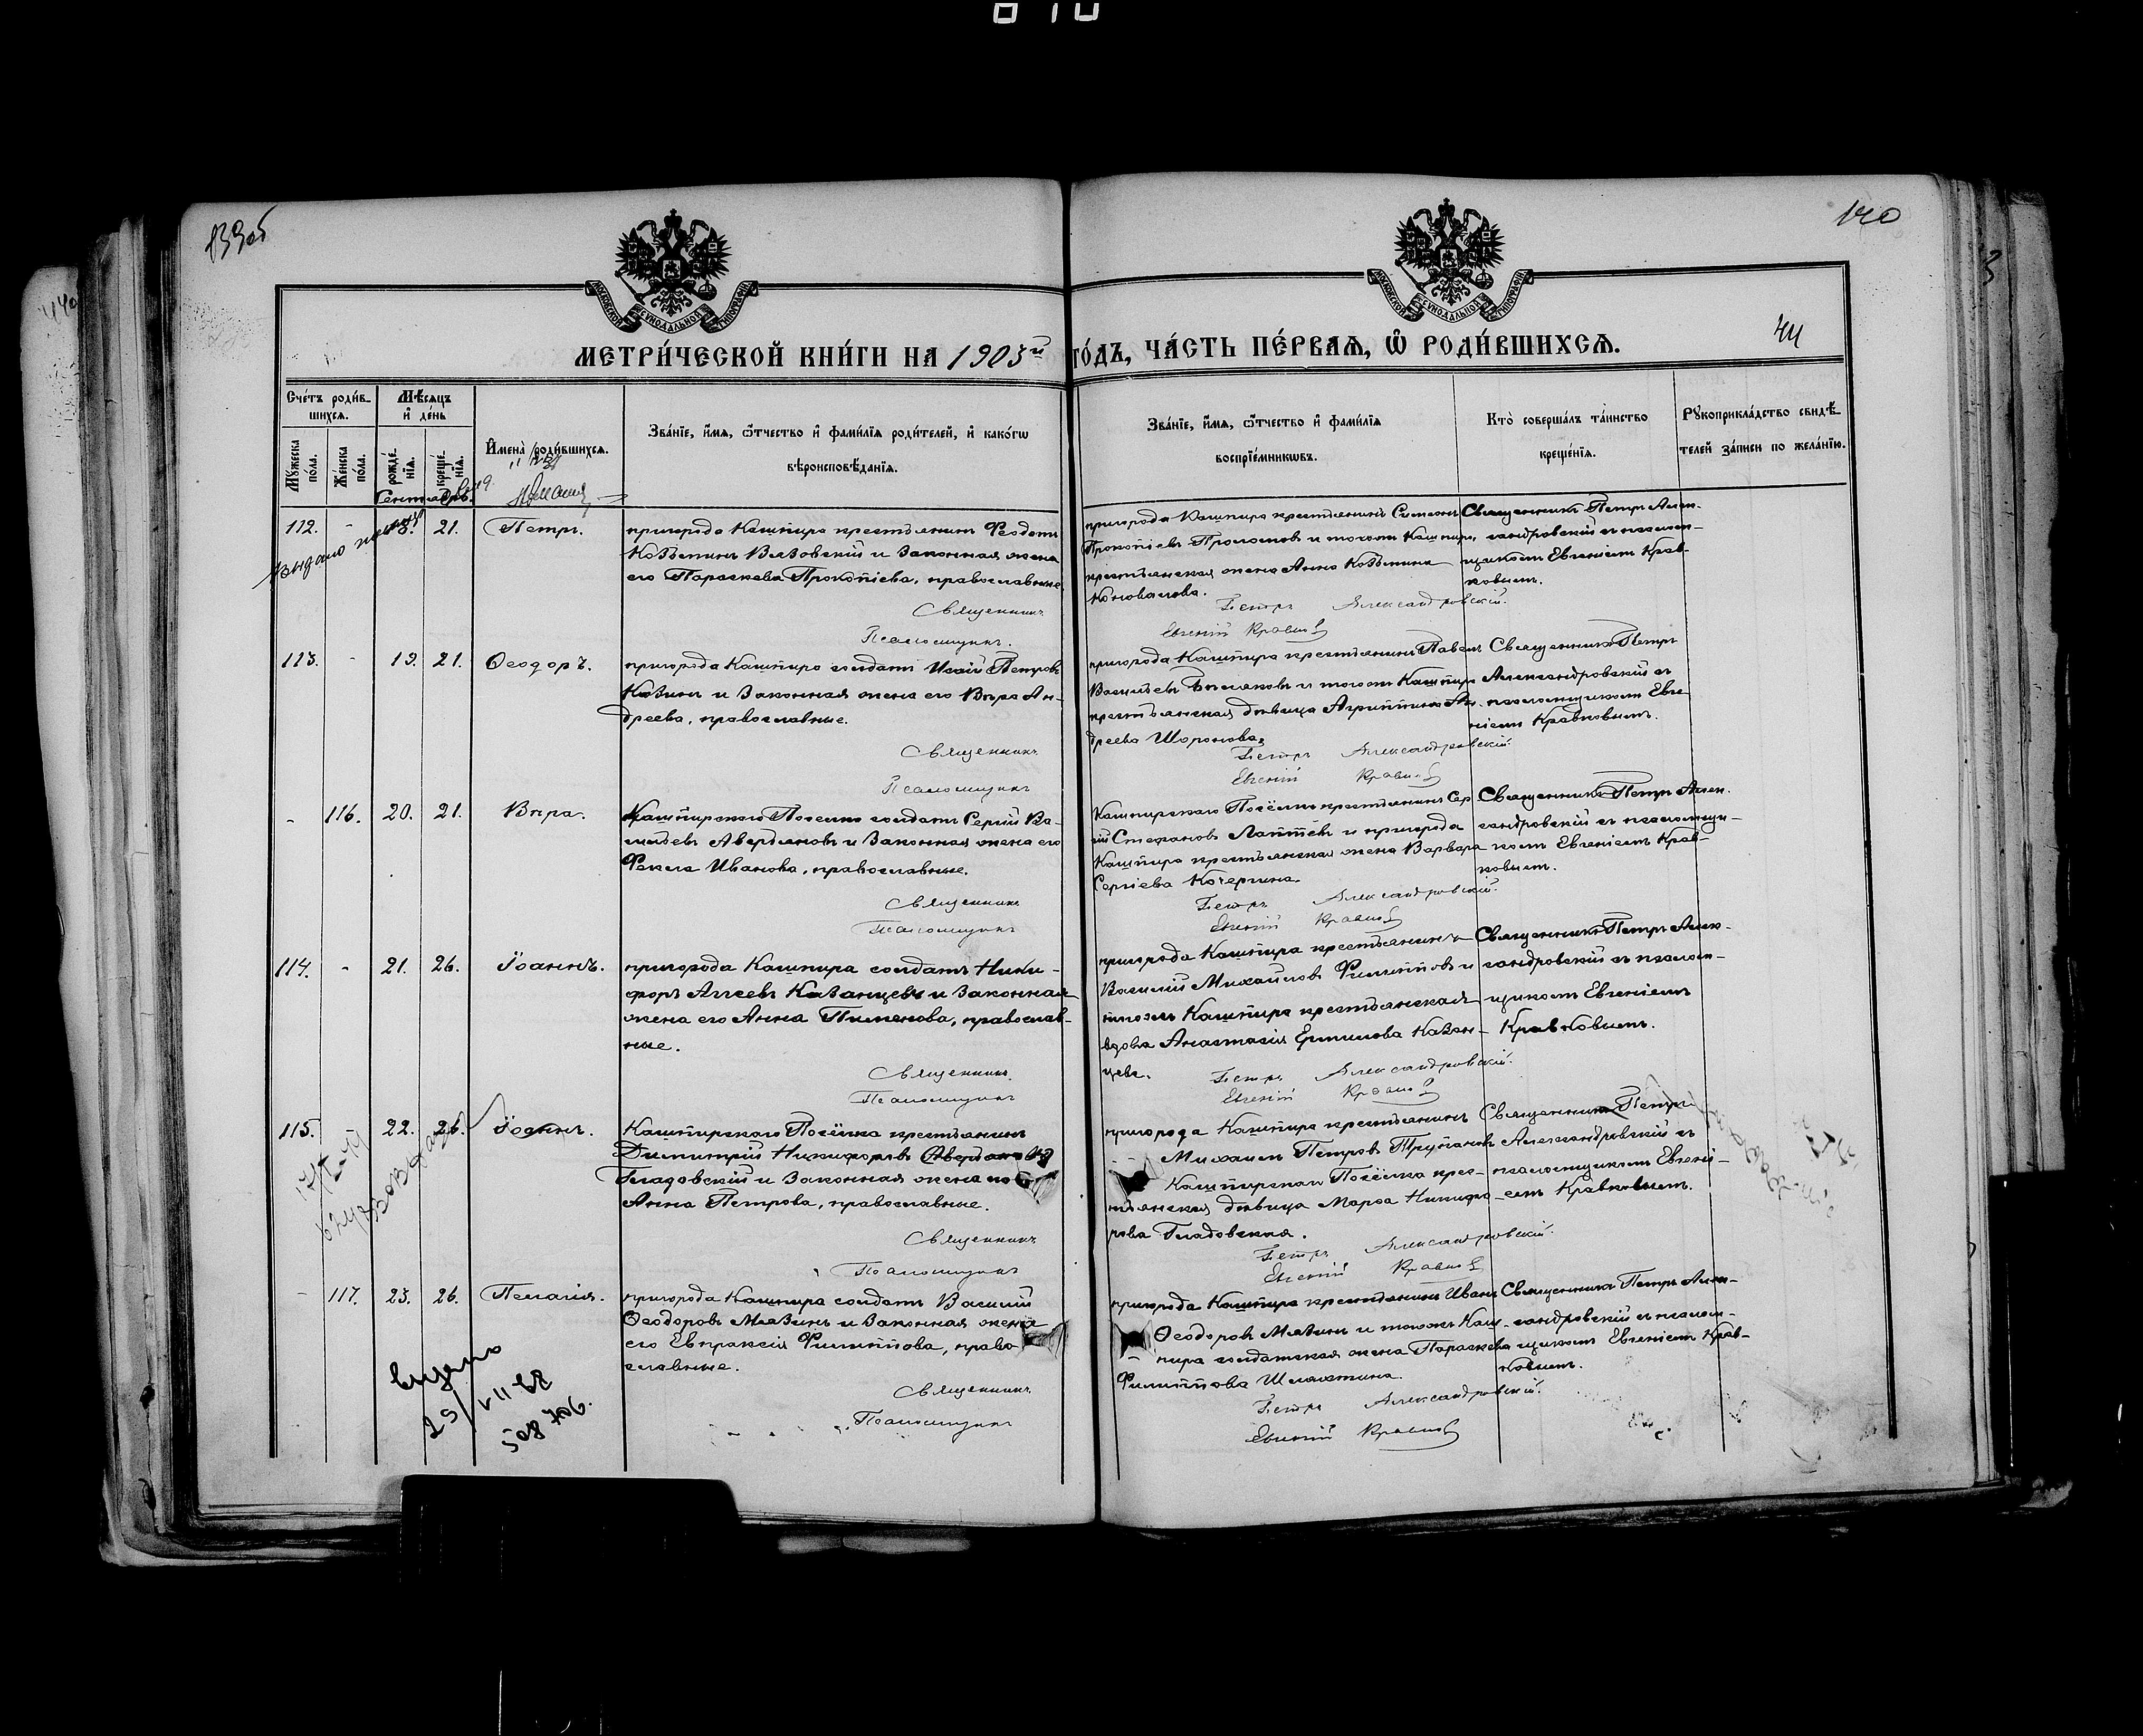 139об
140
44
МОСКОВСКОЙ СѴНОДАЛЬНОЙ ТИПОГРАФІИ
МОСКОВСКОЙ СѴНОДАЛЬНОЙ ТИПОГРАФІИ
МЕТРИ́ЧЕСКОЙ КНИ́ГИ НА 1903й ГО́ДЪ, ЧА́СТЬ ПЕ́РВАЯ, Ѡ РОДИ́ВШИХСЯ.
Сче́тъ роди́вшихся.
Мꙋ́жеска по́ла.
Же́нска по́ла.
Мѣ́сяцъ и҆ де́нь
рожде́нїя.
креще́нїя.
И҆мена̀ роди́вшихся.
Зва́нїе, и҆́мя, ѻ҆́тчество и҆ фами́лїя роди́телей, и҆ како́гѡ
вѣроисповѣ́данїя.
Зва́нїе, и҆́мя, ѻ҆́тчество и҆ фами́лїя
воспрїе́мникѡвъ.
Кто̀ соверша́лъ та́инство
креще́нїя.
Рꙋкоприкла́дство свидѣ́-
телей за́писи по жела́нїю.
Сентябрь.
112. - 21. Петръ.
пригорода Кашпира крестьянинъ Феодотъ
Козьминъ Вязовскій и законная жена
его Параскева Прокопіева, православные
Священникъ
Псаломщикъ.
пригорода Кашпира крестьянинъ Симеонъ
Прокопіевъ Проломовъ и тогожъ Кашпира
крестьянская жена Анна Козьмина
Коновалова.
Петръ Александровскій.
Евгеній Кравковъ
Священникъ Петръ Алек-
сандровскій съ псалом-
щикомъ Евгеніемъ Крав-
ковымъ.
113. - 19. 21. Ѳеодоръ.
пригорода Кашпира солдатъ Исай Петровъ
Казинъ и законная жена его Вѣра Ан-
дреева, православные.
Священникъ
Псаломщикъ
пригорода Кашпира крестьянинъ Павелъ
Васильевъ Бѣляковъ и тогожъ Кашпира
крестьянская дѣвица Агриппина Ан-
дреева Шоронова.
Петръ Александровскій
Евгеній Кравковъ
Священникъ Петръ
Александровскій съ
псаломщикомъ Евге-
ніемъ Кравковымъ.
- 116. 20. 21. Вѣра.
Кашпирскаго Посёлка солдатъ Сергій Ва-
сильевъ Авердяковъ и законная жена его
Фекла Иванова, православные.
Священникъ
Псаломщикъ
Кашпирскаго Посёлка крестьянинъ Сер-
гій Стефановъ Лаптевъ и пригорода
Кашпира крестьянская жена Варвара
Сергіева Кочергина.
Петръ Александровскій.
Евгеній Кравковъ
Священникъ Петръ Алек-
сандровскій съ псаломщи-
комъ Евгеніемъ Крав-
ковымъ.
114. - 21. 26. Іоаннъ.
пригорода Кашпира солдатъ Ники-
форъ Агеевъ Казанцевъ и законная
жена его Анна Пименова, православ-
ные.
Священникъ
Псаломщикъ
пригорода Кашпира крестьянинъ
Василій Михайловъ Филипповъ и
тогожъ Кашпира крестьянская
вдова Анастасія Ермилова Казан-
цева.
Петръ Александровскій.
Евгеній Кравковъ
Священникъ Петръ Алек-
сандровскій съ псалом-
щикомъ Евгеніемъ
Кравковымъ.
115. 22. 26. Іоаннъ.
Кашпирскаго Посёлка крестьянинъ
Димитрій Никифоровъ
Гладовскій и законная жена его
Анна Петрова, православные.
Священникъ
Псаломщикъ
пригорода Кашпира крестьянинъ
Михаилъ Петровъ Трупановъ
Кашпирскаго Посёлка крес-
тьянская дѣвица Марѳа Никифо-
рова Гладовская.
Петръ Александровскій.
Евгеній Кравковъ
Священникъ Петръ
Александровскій съ
псаломщикомъ Евгені-
емъ Кравковымъ.
- 117. 23. 26. Пелагія.
пригорода Кашпира солдатъ Василій
Ѳеодоровъ Мязинъ и законная жена
его Евпраксія Филиппова, право
славные.
Священникъ
Псаломщикъ
пригорода Кашпира крестьянинъ Иванъ
Ѳеодоровъ Мязинъ и тогожъ Каш-
пира солдатская жена Параскева
Филиппова Шелахтина.
Петръ Александровскій.
Евгеній Кравковъ
Священникъ Петръ Алек-
сандровскій съ псалом-
щикомъ Евгеніемъ Крав-
ковымъ.